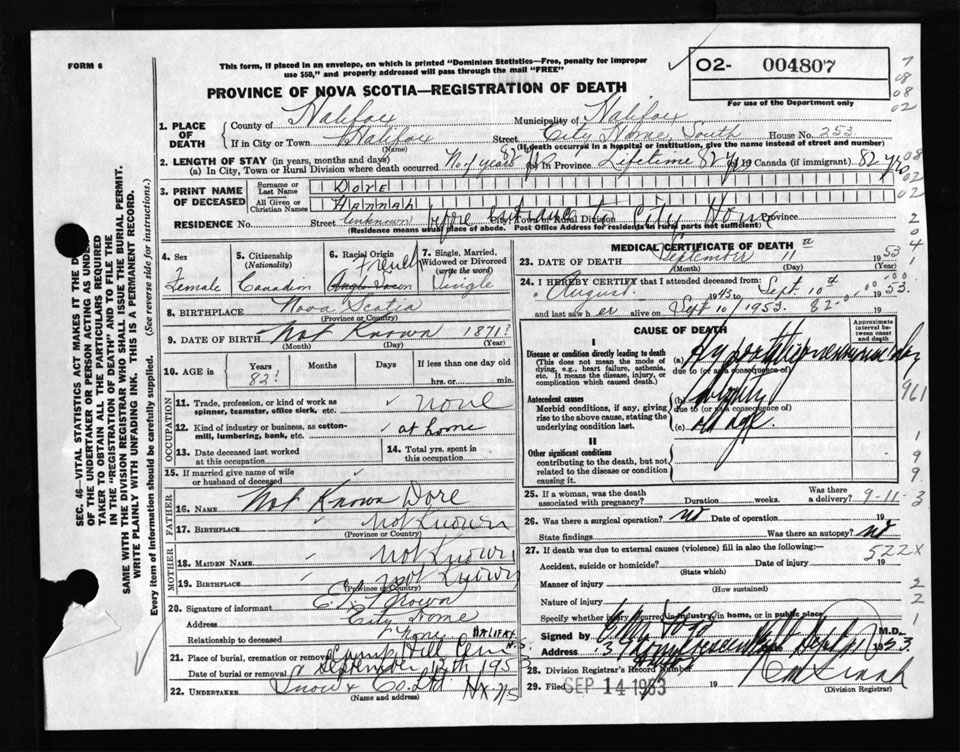 FORM 6
This form, if placed in an envelope, on which is printed "Dominion Statistics—Free, penalty for improper
use $50," and properly addressed will pass through the mail "FREE"
O2- 004807
For use of the Department only
PROVINCE OF NOVA SCOTIA—REGISTRATION OF DEATH
7
08
08
02
1. PLACE OF DEATH
County of Halifax Municipality of Halifax
If in City or Town Halifax Street City Home, South House No. 253
(Name) (If death occurred in a hospital or institution, give the name instead of street and number)
2. LENGTH OF STAY (in years, months and days)
(a) In City, Town or Rural Division where death occurred in Province Lifetime 82 yrs in Canada (if immigrant) 82 yrs
08
02
02
3. PRINT NAME OF DECEASED
Surname or Last Name Dore
All Given or Christian Names Hannah
RESIDENCE No. Street Unknown before entrance to City Home City, Town or Rural Division Province
(Residence means usual place of abode. Post Office Address for residents in rural parts not sufficient)
2
0
4
4. Sex
Female
5. Citizenship
(Nationality)
Canadian
6. Racial Origin
French
Anglo Saxon
7. Single, Married, Widowed or Divorced
(write the word)
Single
8. BIRTHPLACE Nova Scotia
(Province or Country)
9. DATE OF BIRTH Not Known 1871?
(Month) (Day) (Year)
10. AGE in
Years
82?
Months
Days
If less than one day old
hrs. or min.
OCCUPATION
11. Trade, profession, or kind of work as spinner, teamster, office clerk, etc. none
12. Kind of industry or business, as cotton-mill, lumbering, bank, etc. at home
13. Date deceased last worked at this occupation
14. Total yrs. spent in this occupation
15. If married give name of wife or husband of deceased
FATHER
16. NAME Not Known Dore
17. BIRTHPLACE Not Known
(Province or Country)
MOTHER
18. MAIDEN NAME Not Known
19. BIRTHPLACE Not Known
(Province or Country)
20. Signature of informant
Address City Home
Relationship to deceased none
21. Place of burial, cremation or removal Camp Hill Cem HALIFAX N.S.
Date of burial or removal September 13th 1953
22. UNDERTAKER Snow & Co. Ltd Hx. N S
(Name and address)
MEDICAL CERTIFICATE OF DEATH
23. DATE OF DEATH September 11th 1953
(Month) (Day) (Year)
24. I HEREBY CERTIFY that I attended deceased from
August 1943 to Sept. 10th 1953.
and last saw her alive on Sept 10/1953. 19
CAUSE OF DEATH
Approximate interval between onset and death
I
Disease or condition directly leading to death
(This does not mean the mode of dying, e.g., heart failure, asthenia, etc. It means the disease, injury, or complication which caused death.)
(a) Hypostatic pneumonia
due to (or as a consequence of)
Antecedent causes
Morbid conditions, if any, giving rise to the above cause, stating the underlying condition last.
(b)
due to (or as a consequence of)
(c) old age.
II
Other significant conditions
contributing to the death, but not related to the disease or condition causing it.
25. If a woman, was the death associated with pregnancy? Duration weeks. Was there a delivery? 9-11-3
26. Was there a surgical operation? no Date of operation 19
State findings Was there an autopsy? no
27. If death was due to external causes (violence) fill in also the following:—
522X
Accident, suicide or homicide? Date of injury 19
(State which)
Manner of injury
(How sustained)
Nature of injury
Specify whether injury occurred in industry, in home, or in public place
Signed by M.D.
Address Date Sept 11 1953
28. Division Registrar's Record Number
29. Filed SEP 14 1953 19
(Division Registrar)
SEC. 46—VITAL STATISTICS ACT MAKES IT THE D
OF THE UNDERTAKER OR PERSON ACTING AS UNDER-
TAKER TO OBTAIN ALL THE PARTICULARS REQUIRED
IN THE "REGISTRATION OF DEATH" AND TO FILE THE
SAME WITH THE DIVISION REGISTRAR WHO SHALL ISSUE THE BURIAL PERMIT.
WRITE PLAINLY WITH UNFADING INK. THIS IS A PERMANENT RECORD.
Every item of information should be carefully supplied. (See reverse side for instructions.)